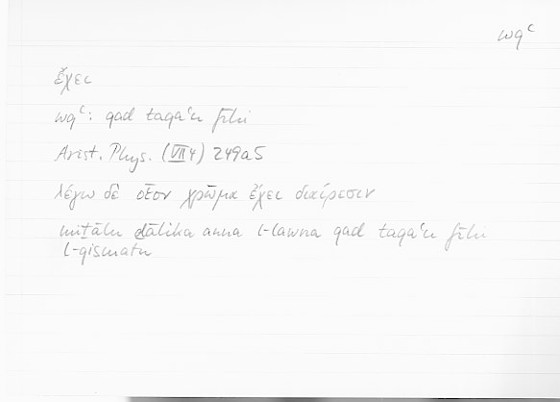 wqʿ
ἔχει
wqʿ: qad taqaʿu fīhi
Arist. Phys. (VII 4) 249a5
λέγω δὲ οἷον χρῶμα ἔχει διαίρεσιν
miṯālu ḏālika anna l-lawna qad taqaʿu fīhi
l-qismatu